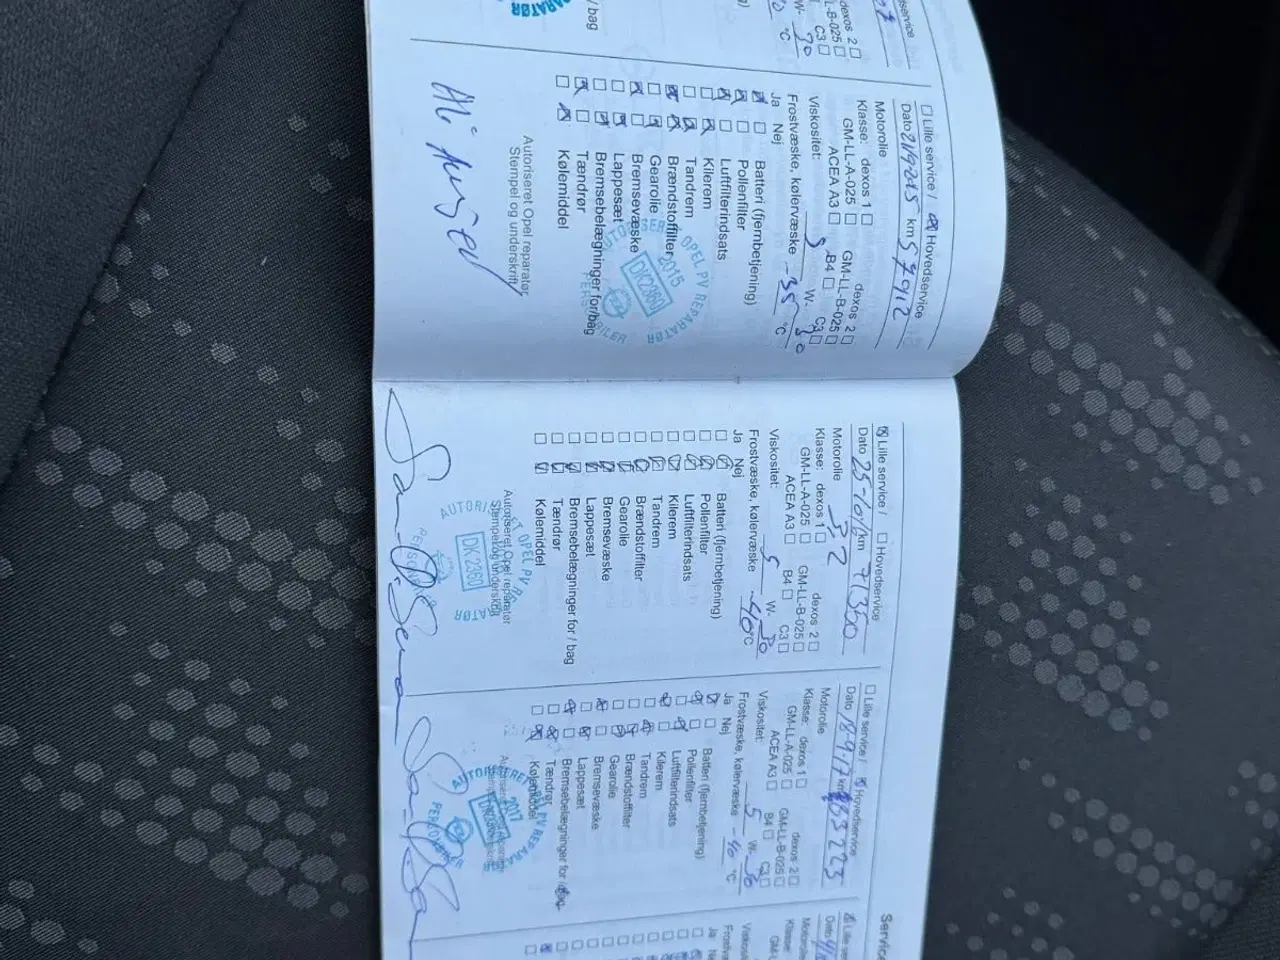 dexos 2
GM-LL-B-025
C3
W- 30
°C
/ bag
REPARATØR
Lille service / Hovedservice
Dato 21/9 2015 km 57912
Motorolie
Klasse: dexos 1 dexos 2
GM-LL-A-025 GM-LL-B-025
ACEA A3 B4 C3
Viskositet: 5 W- 30
Frostvæske, kølervæske -35 °C
Ja Nej
Batteri (fjernbetjening)
Pollenfilter
Luftfilterindsats
Kilerem
Tandrem
Brændstoffilter
Gearolie
Bremsevæske
Lappesæt
Bremsebelægninger for/bag
Tændrør
Kølemiddel
Autoriseret Opel reparatør
Stempel og underskrift
AUTORISERET OPEL PV REPARATØR
2015
DK2360
PERSONBILER
Lille service / Hovedservice
Dato km 71360
Motorolie 3,2
Klasse: dexos 1 dexos 2
GM-LL-A-025 GM-LL-B-025
ACEA A3 B4 C3
Viskositet: 5 W- 30
Frostvæske, kølervæske -40 °C
Ja Nej
Batteri (fjernbetjening)
Pollenfilter
Luftfilterindsats
Kilerem
Tandrem
Brændstoffilter
Gearolie
Bremsevæske
Lappesæt
Bremsebelægninger for / bag
Tændrør
Kølemiddel
Autoriseret Opel reparatør
Stempel og underskrift
DK2360
Lille service / Hovedservice
Dato 18-9-17 km 83223
Motorolie
Klasse: dexos 1 dexos 2
GM-LL-A-025 GM-LL-B-025
ACEA A3 B4 C3
Viskositet: 5 W- 30
Frostvæske, kølervæske -40 °C
Ja Nej
Batteri (fjernbetjening)
Pollenfilter
Luftfilterindsats
Kilerem
Tandrem
Brændstoffilter
Gearolie
Bremsevæske
Lappesæt
Bremsebelægninger for / bag
Tændrør
Kølemiddel
AUTORISERET OPEL PV REPARATØR
2017
DK2360
Service
Lille
Dato
Motorolie
Klasse:
Viskositet
Ja